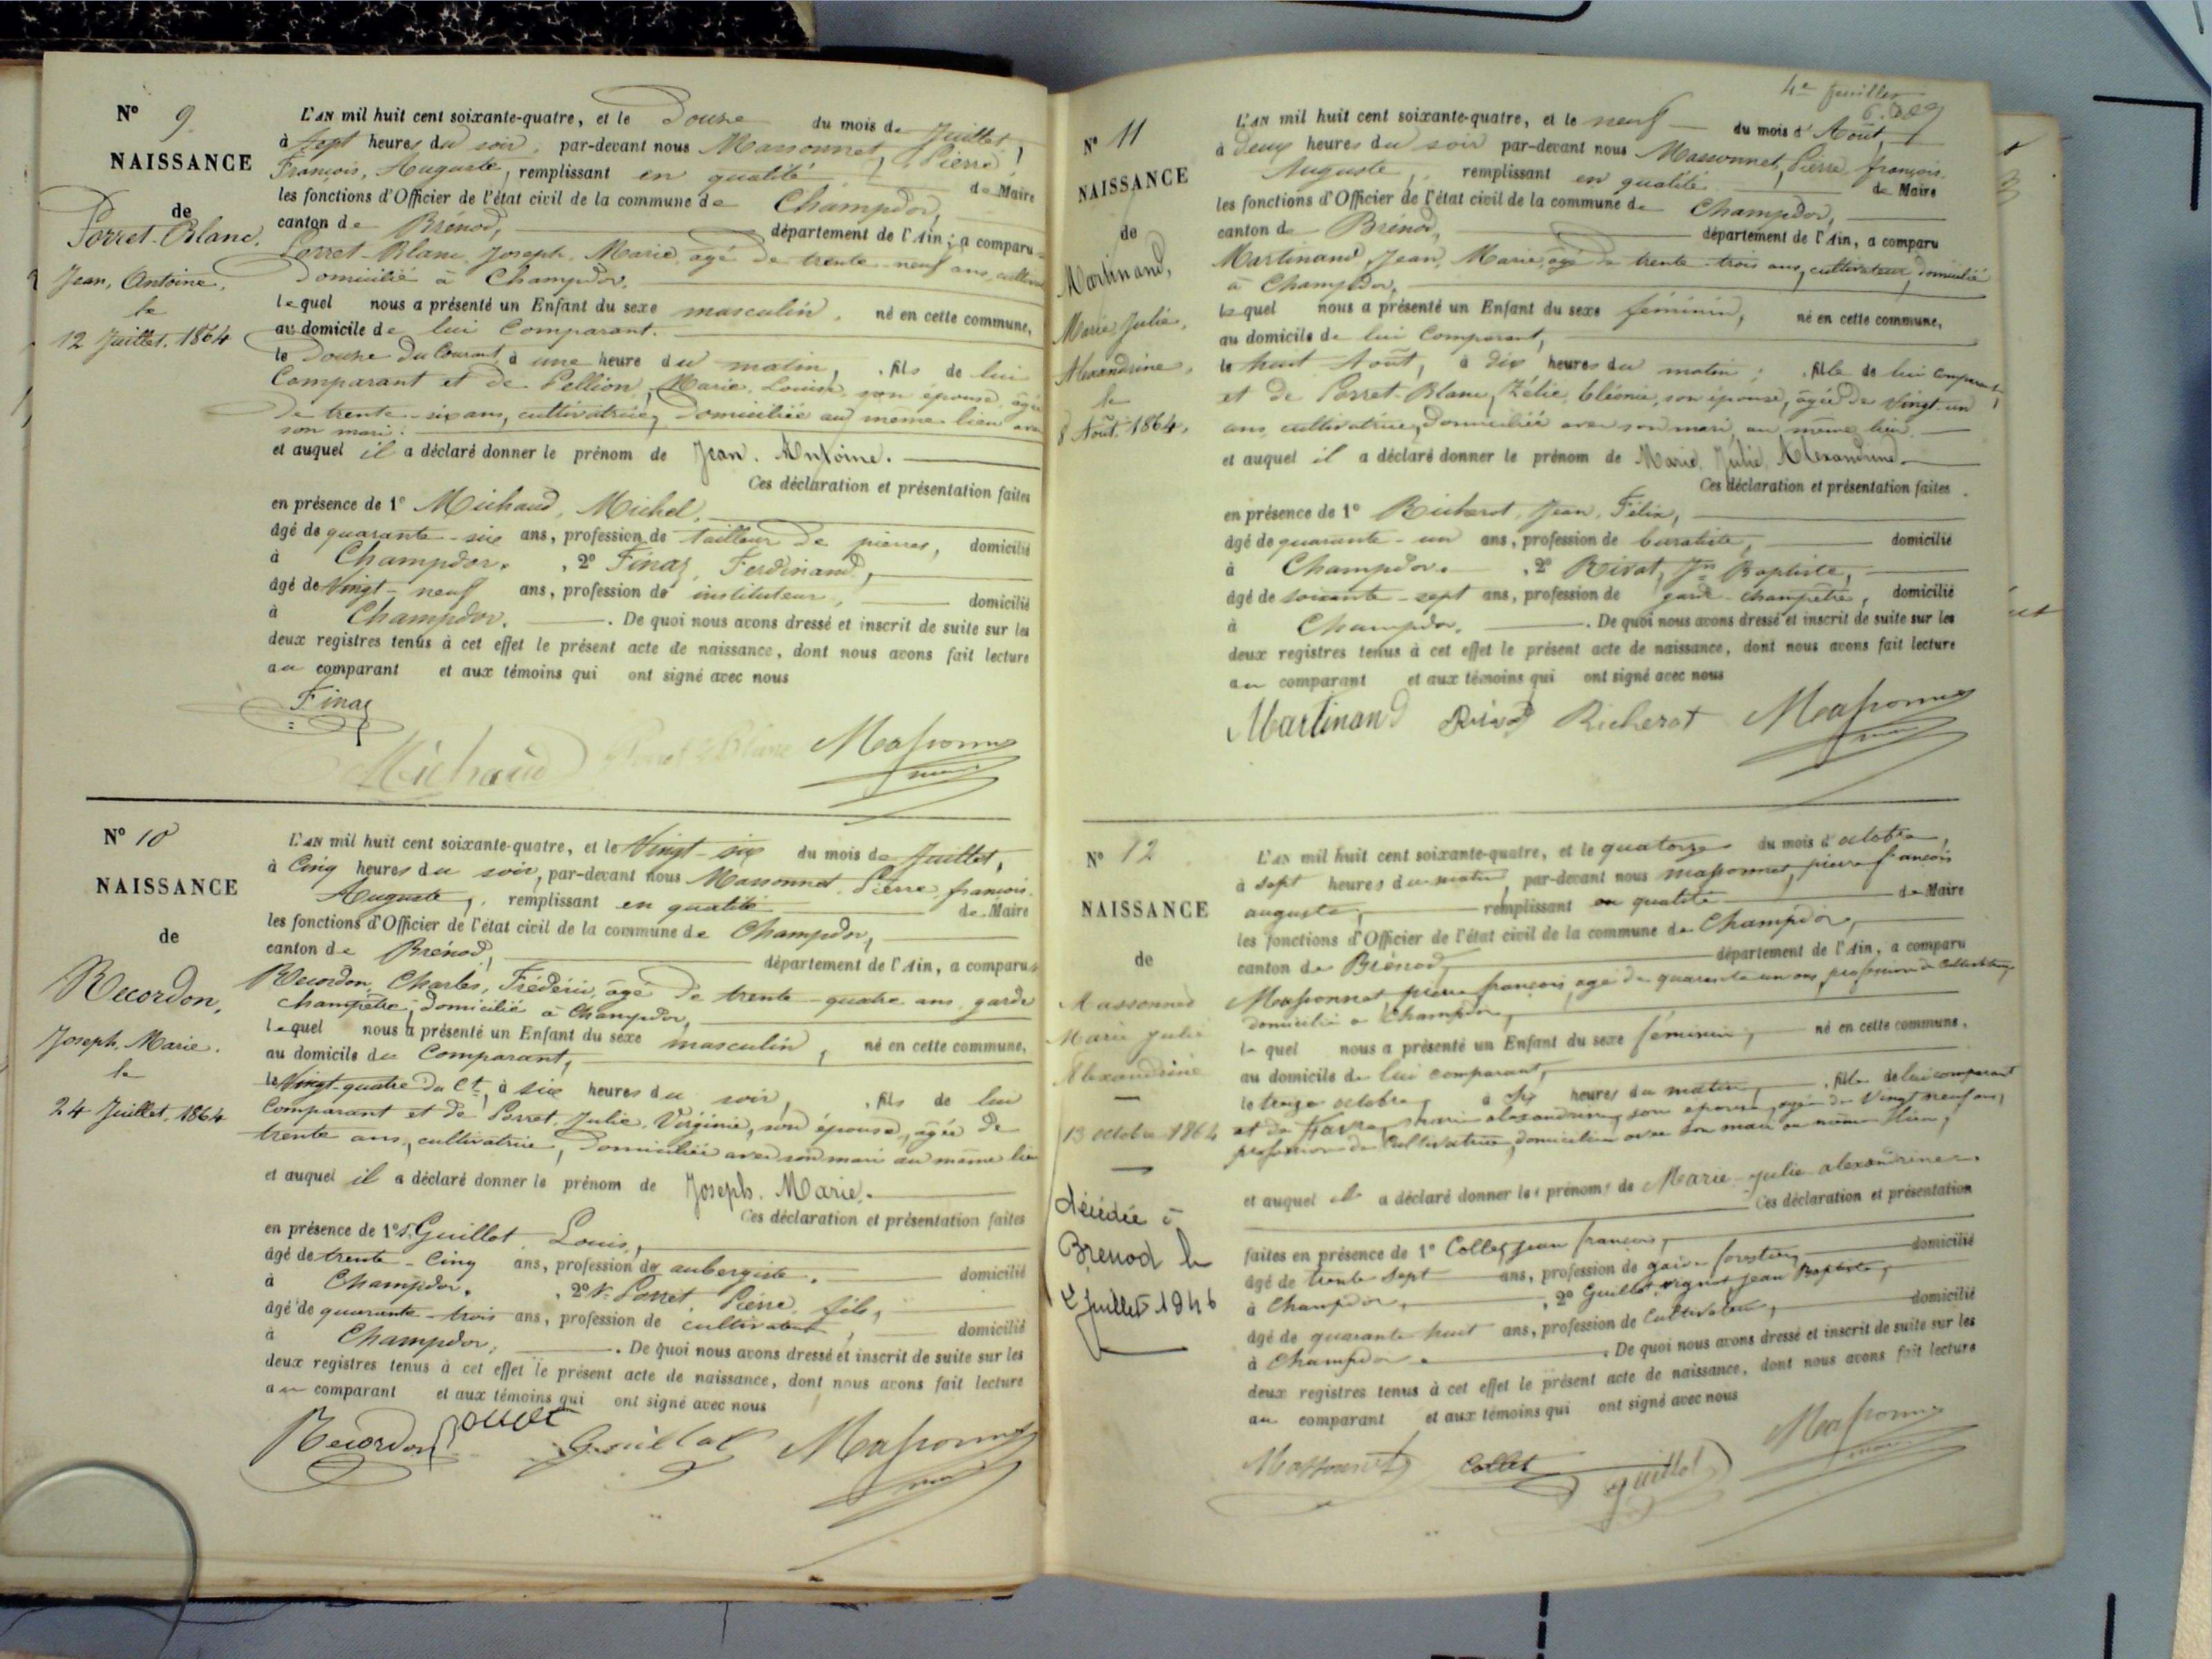 N° 9.
NAISSANCE
de
Porret-Blanc,
Jean, Antoine,
le
12 Juillet, 1864
L'AN mil huit cent soixante-quatre, et le Douze du mois de Juillet,
à sept heures du soir, par-devant nous Massonnet, Pierre,
François, Auguste, remplissant en qualité de Maire
les fonctions d'Officier de l'état civil de la commune de Champdor,
canton de Brénod, département de l'Ain, a comparu
Porret-Blanc, Joseph, Marie, agé de trente-neuf ans,
domicilié à Champdor,
lequel nous a présenté un Enfant du sexe masculin, né en cette commune,
au domicile de lui Comparant.
le Douze du Courant, à une heure du matin, fils de lui
Comparant et de Pellion, Marie, Louise, son épouse, agée
de trente-six ans, cultivatrice, domiciliée au même lieu avec
son mari.
et auquel il a déclaré donner le prénom de Jean. Antoine.
Ces déclaration et présentation faites
en présence de 1° Michaud, Michel,
âgé de quarante-six ans, profession de tailleur de pierres, domicilié
à Champdor. , 2° Finaz, Ferdinand,
âgé de Vingt-neuf ans, profession de instituteur, domicilié
à Champdor. . De quoi nous avons dressé et inscrit de suite sur les
deux registres tenus à cet effet le présent acte de naissance, dont nous avons fait lecture
au comparant et aux témoins qui ont signé avec nous
Finaz
Michaud Porret-Blanc Massonnet
N° 10
NAISSANCE
de
Recordon,
Joseph, Marie.
le
24 Juillet, 1864
L'AN mil huit cent soixante-quatre, et le Vingt-six du mois de Juillet,
à Cinq heures du soir, par-devant nous Massonnet, Pierre, françois,
Auguste, remplissant en qualité de Maire
les fonctions d'Officier de l'état civil de la commune de Champdor,
canton de Brénod, département de l'Ain, a comparu
Recordon, Charles, Frédéric, âgé de trente-quatre ans, garde
champêtre, domicilié à Champdor,
lequel nous a présenté un Enfant du sexe masculin, né en cette commune,
au domicile du Comparant,
le Vingt-quatre du Ct, à six heures du soir, fils de lui
Comparant et de Porret, Julie, Virginie, son épouse, âgée de
trente ans, cultivatrice, domiciliée avec son mari au même lieu
et auquel il a déclaré donner le prénom de Joseph. Marie.
Ces déclaration et présentation faites
en présence de 1° Guillot, Louis,
âgé de trente-Cinq ans, profession de aubergiste, domicilié
à Champdor. , 2° Porret, Pierre, fils,
âgé de quarante-trois ans, profession de cultivateur, domicilié
à Champdor, . De quoi nous avons dressé et inscrit de suite sur les
deux registres tenus à cet effet le présent acte de naissance, dont nous avons fait lecture
au comparant et aux témoins qui ont signé avec nous
Recordon Porret Guillot Massonnet
4e feuillet
N° 11
NAISSANCE
de
Martinand,
Marie, Julie,
Alexandrine,
le
8 Août, 1864.
L'AN mil huit cent soixante-quatre, et le neuf du mois d'Août,
à deux heures du soir par-devant nous Massonnet, Pierre, françois,
Auguste, remplissant en qualité de Maire
les fonctions d'Officier de l'état civil de la commune de Champdor,
canton de Brénod, département de l'Ain, a comparu
Martinand, Jean, Marie, âgé de trente-trois ans, cultivateur, domicilié
à Champdor,
lequel nous a présenté un Enfant du sexe féminin, né en cette commune,
au domicile de lui Comparant,
le huit Août, à dix heures du matin, fille de lui Comparant,
et de Porret-Blanc, Zélie, Cléonie, son épouse, âgée de Vingt-un
ans, cultivatrice, domiciliée avec son mari au même lieu,
et auquel il a déclaré donner le prénom de Marie, Julie, Alexandrine.
Ces déclaration et présentation faites
en présence de 1° Richerot, Jean, Félix,
âgé de quarante-un ans, profession de buraliste, domicilié
à Champdor. , 2° Rivat, Jn Baptiste,
âgé de soixante-sept ans, profession de garde-champêtre, domicilié
à Champdor. . De quoi nous avons dressé et inscrit de suite sur les
deux registres tenus à cet effet le présent acte de naissance, dont nous avons fait lecture
au comparant et aux témoins qui ont signé avec nous
Martinand Richerot Massonnet
N° 12
NAISSANCE
de
Massonnet
Marie Julie
Alexandrine
13 octobre 1864
décédée à
Brenod le
2 Juillet 1946
L'AN mil huit cent soixante-quatre, et le quatorze du mois d'octobre,
à sept heures du matin, par-devant nous massonnet, pierre françois
auguste, remplissant en qualité de Maire
les fonctions d'Officier de l'état civil de la commune de Champdor,
canton de Brénod, département de l'Ain, a comparu
Massonnet, pierre françois, agé de quarante un ans, profession de Cultivateur
domicilié a Champdor,
lequel nous a présenté un Enfant du sexe féminin, né en cette commune,
au domicile de lui comparant,
le treize octobre, à six heures du matin, fille de lui comparant
et de Favre, marie alexandrine, son epouse, agée de Vingt neuf ans,
profession de Cultivatrice, domiciliée avec son mari au même lieu,
et auquel il a déclaré donner les prénoms de Marie-julie-alexandrine.
Ces déclaration et présentation
faites en présence de 1° Collet jean françois, domicilié
âgé de trente sept ans, profession de garde forestier,
à Champdor, , 2° Guillot, jean Baptiste,
âgé de quarante huit ans, profession de Cultivateur, domicilié
à Champdor . De quoi nous avons dressé et inscrit de suite sur les
deux registres tenus à cet effet le présent acte de naissance, dont nous avons fait lecture
au comparant et aux témoins qui ont signé avec nous
Massonnet Collet guillot Massonnet